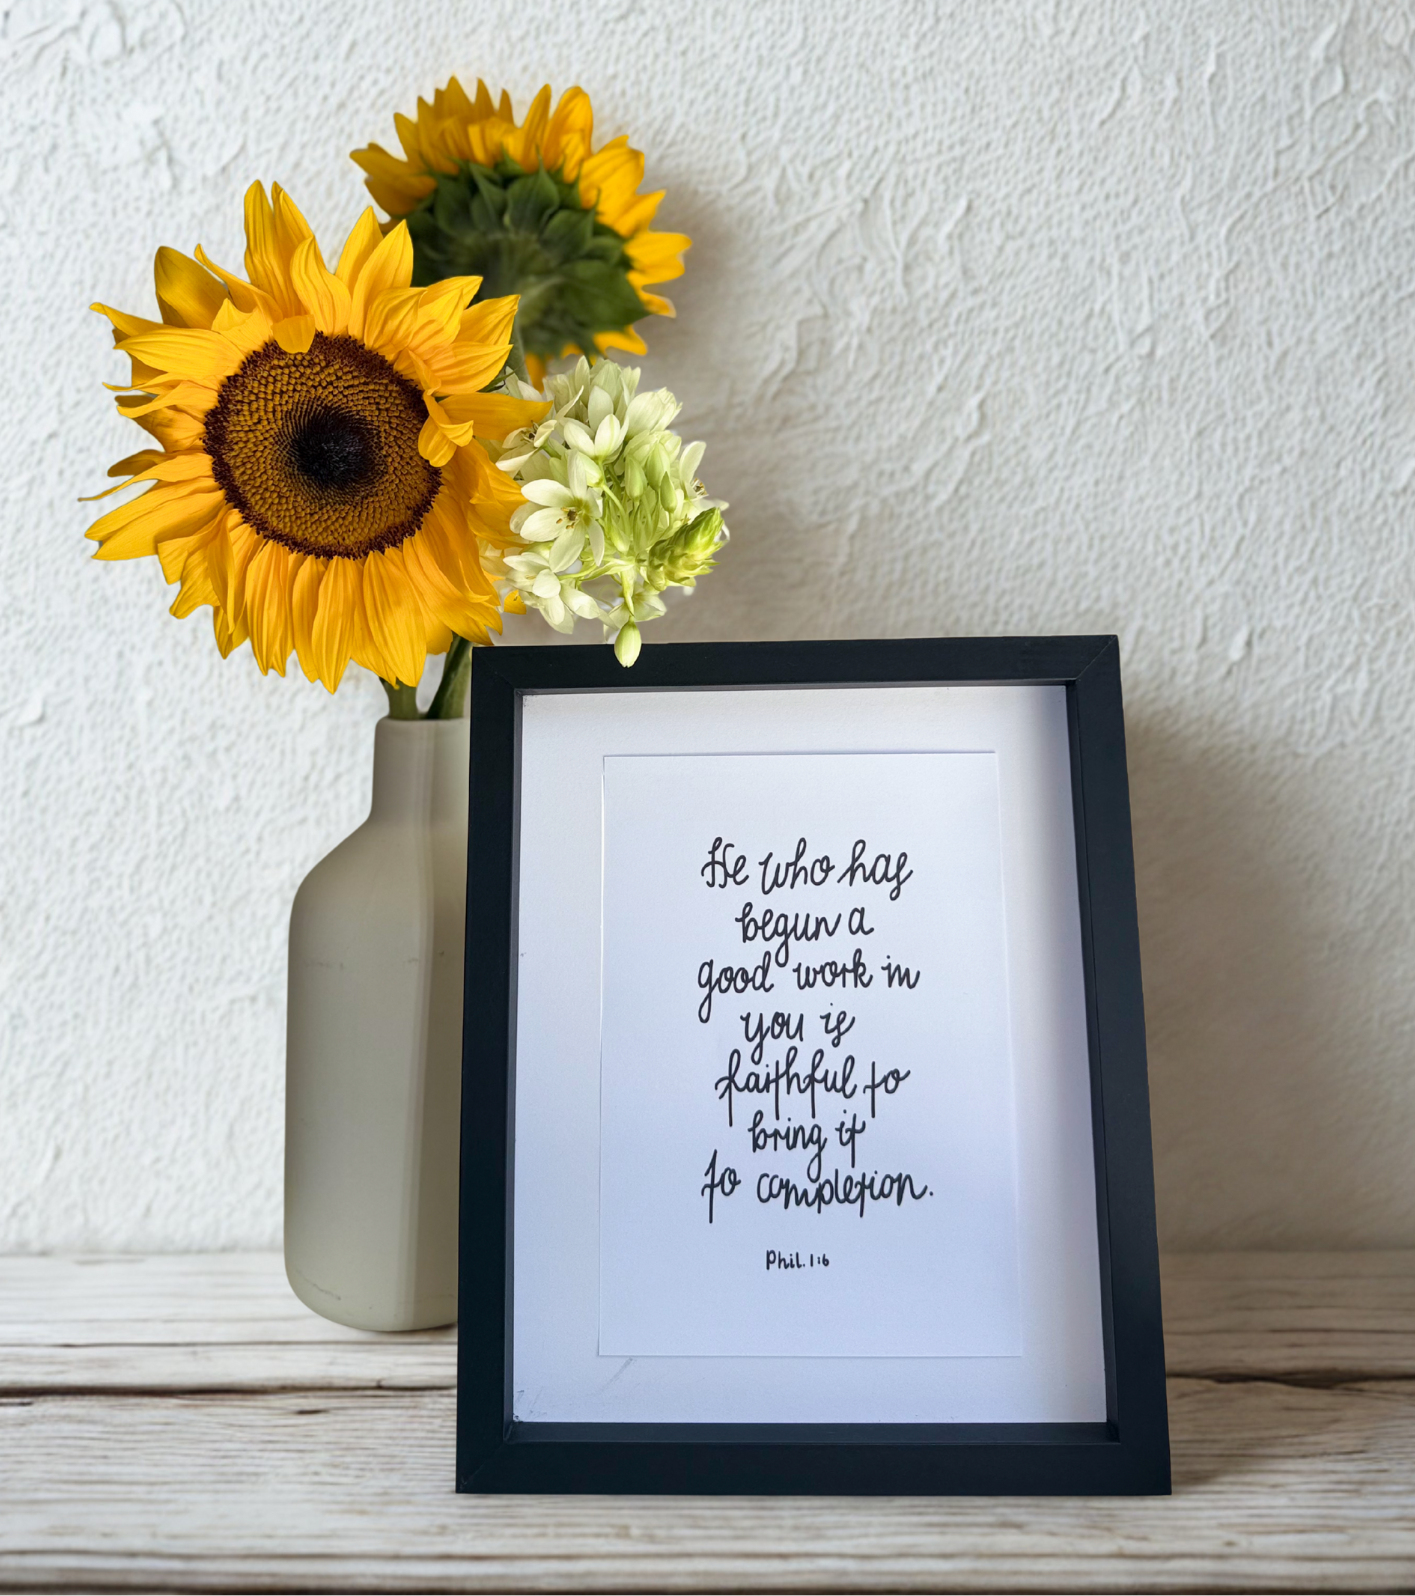 He who has
begun a
good work in
you is
faithful to
bring it
to completion.
Phil. 1:6